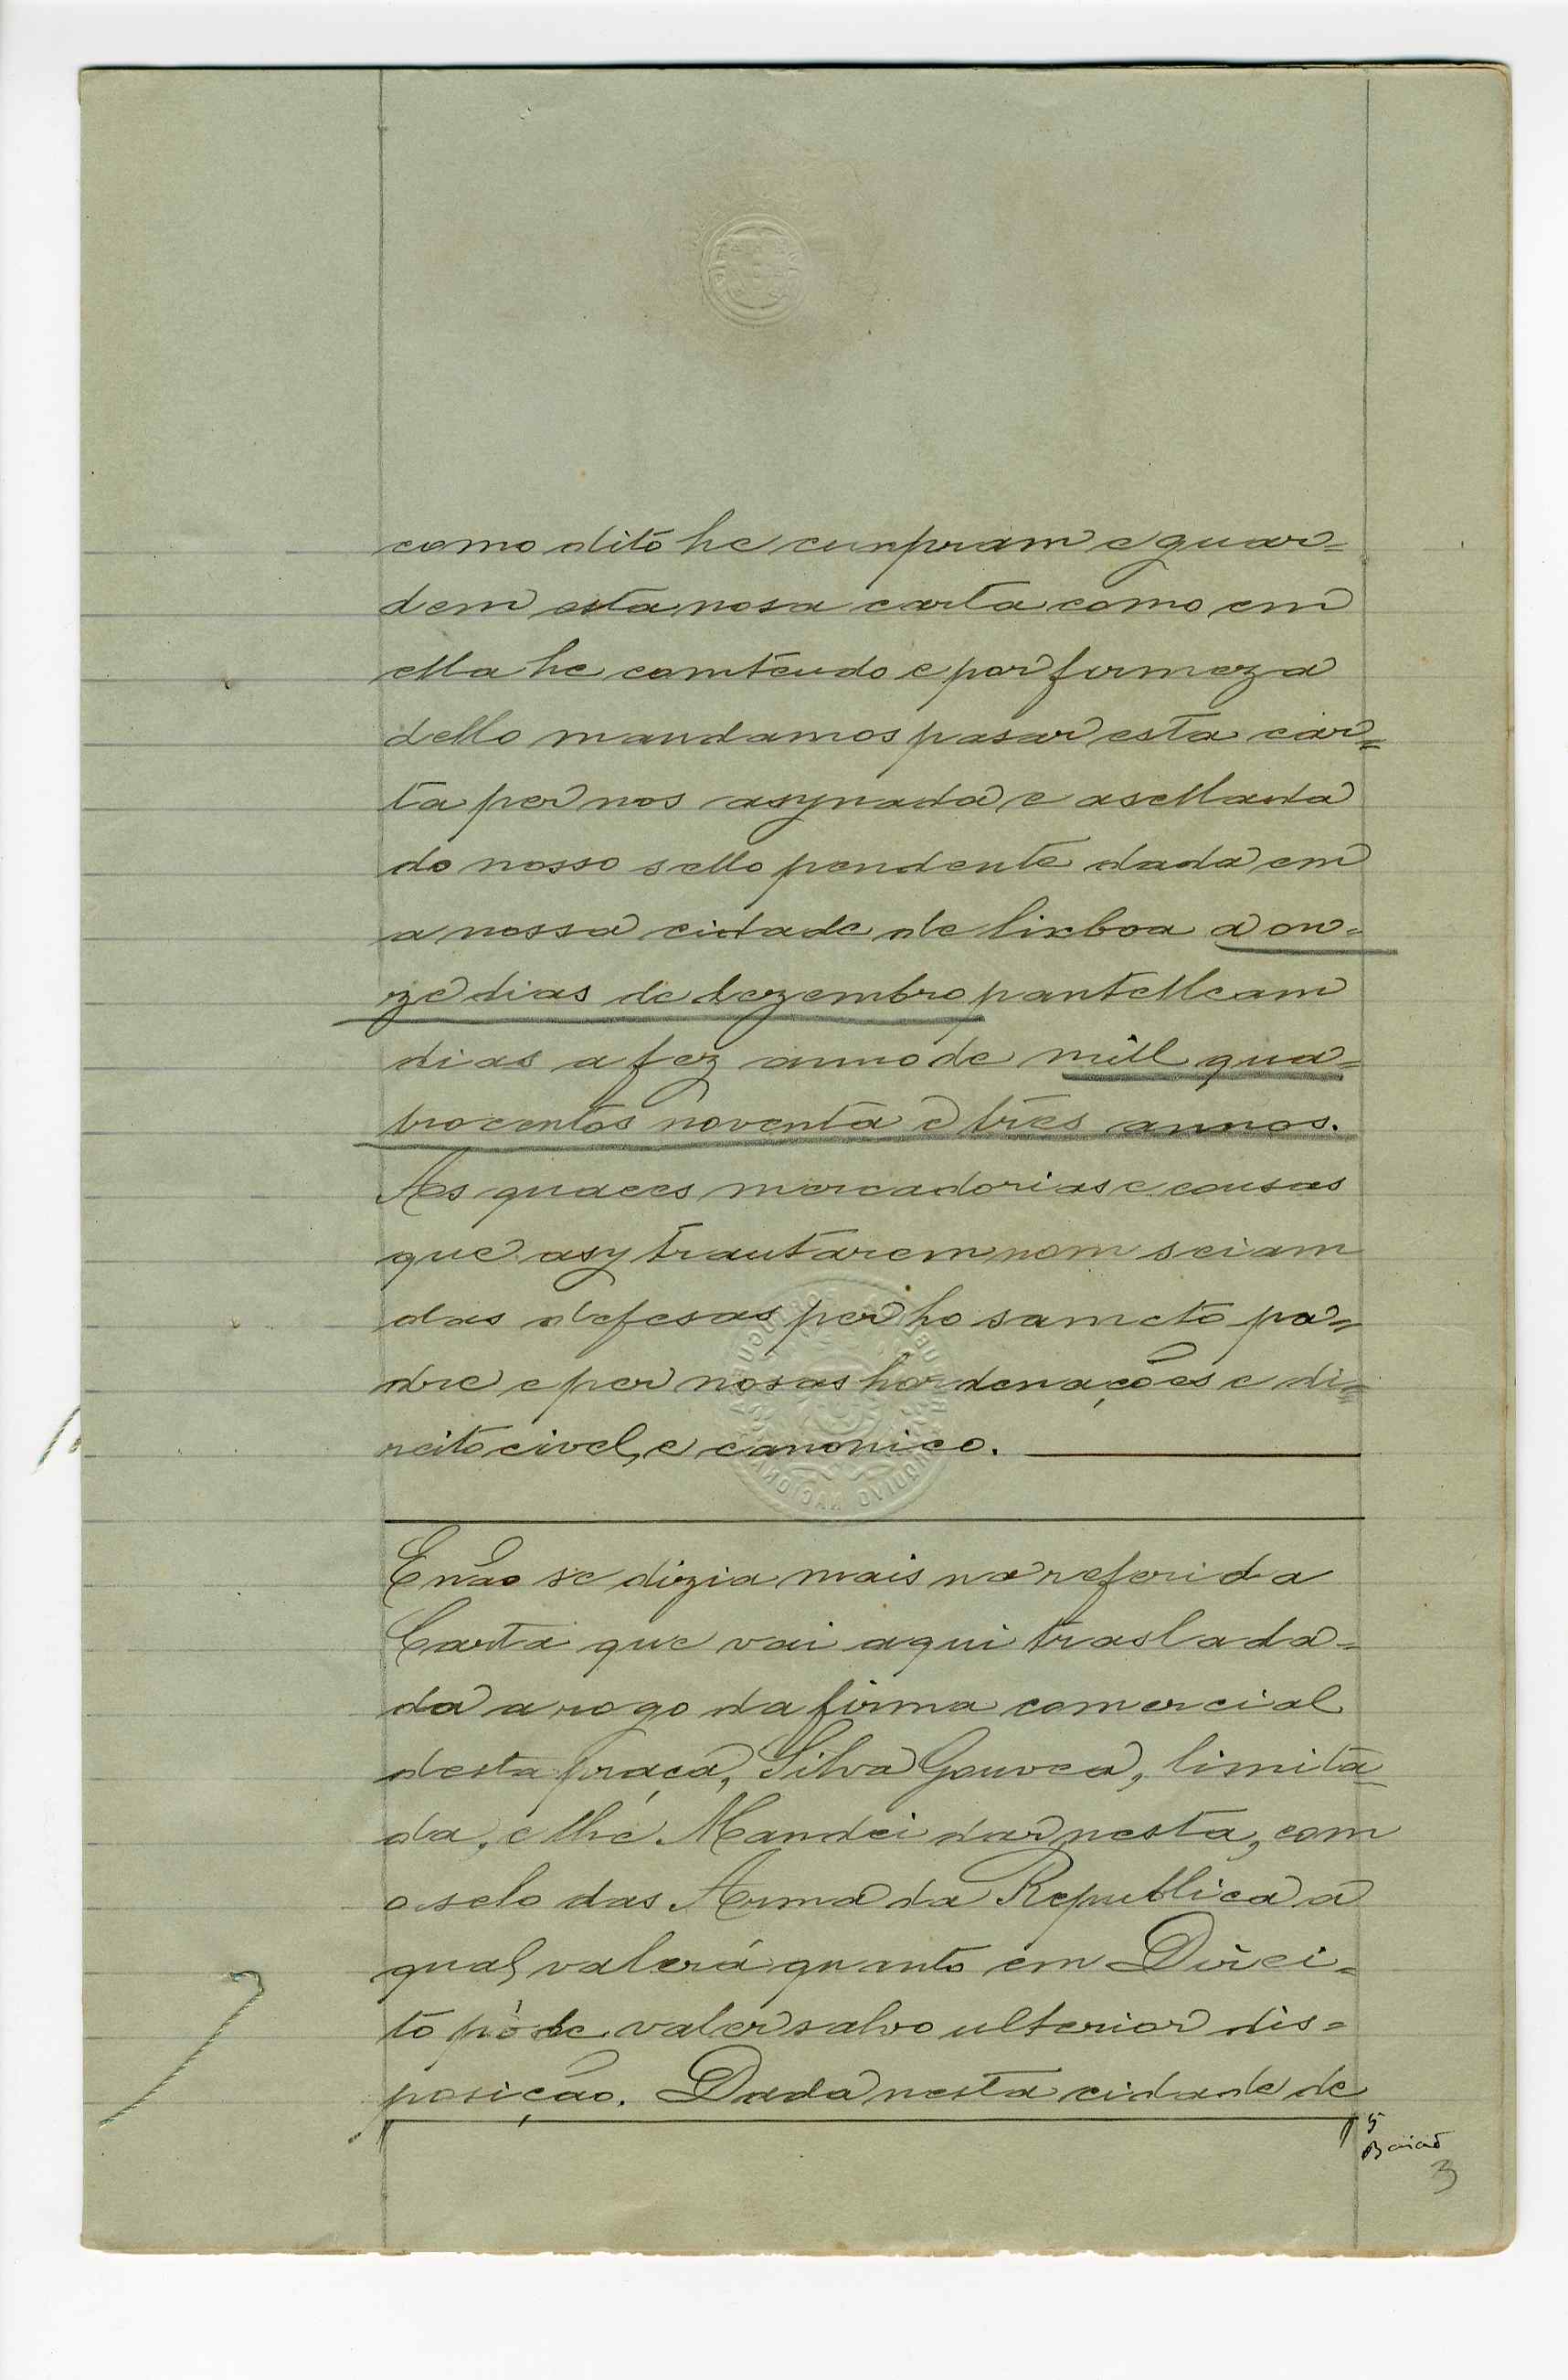 como dito he cumpram e guar=
dem esta nosa carta como em
ella he comteudo e por firmeza
dello mandamos pasar esta car=
ta per nos asynada e asellada
do nosso sello pendente dada em
a nossa cidade de lixboa a on=
ze dias de dezembro pantelleam
dias a fez anno de mill qua=
trocentos noventa e tres annos.
As quaees mercadorias e cousas
que asy trautarem nom seiam
das defesas per ho samcto pa=
dre e per nosas hordenações e di=
reito civel, e canonico.
E não se dizia mais na referida
Carta que vai aqui traslada=
da a rogo da firma comercial
desta praça, Silva Gouvea, limita=
da, e lhe Mandei dar nesta, com
o selo das Arma da Republica a
qual valerá quanto em Direi=
to póde valer salvo ulterior dis=
posição. Dada nesta cidade de
5
Baião
3